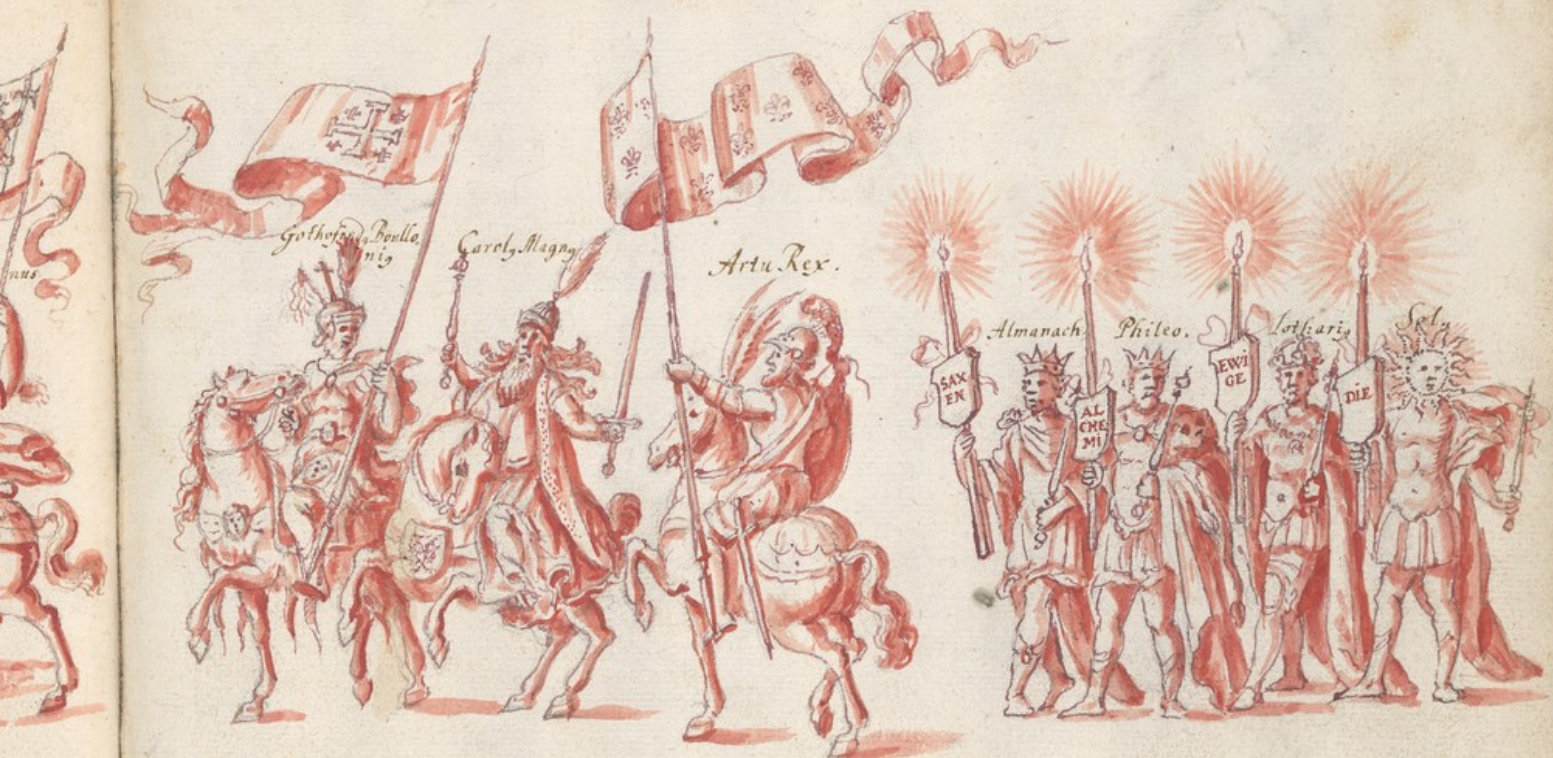 nus.
Gothofredꝰ Boullo,
niꝰ
Carolꝰ Magnꝰ
Artu Rex.
Almanach
Phileo.
Lothariꝰ
Solꝰ
SAX
EN
AL
CHE
MI
EWI
GE
DIE